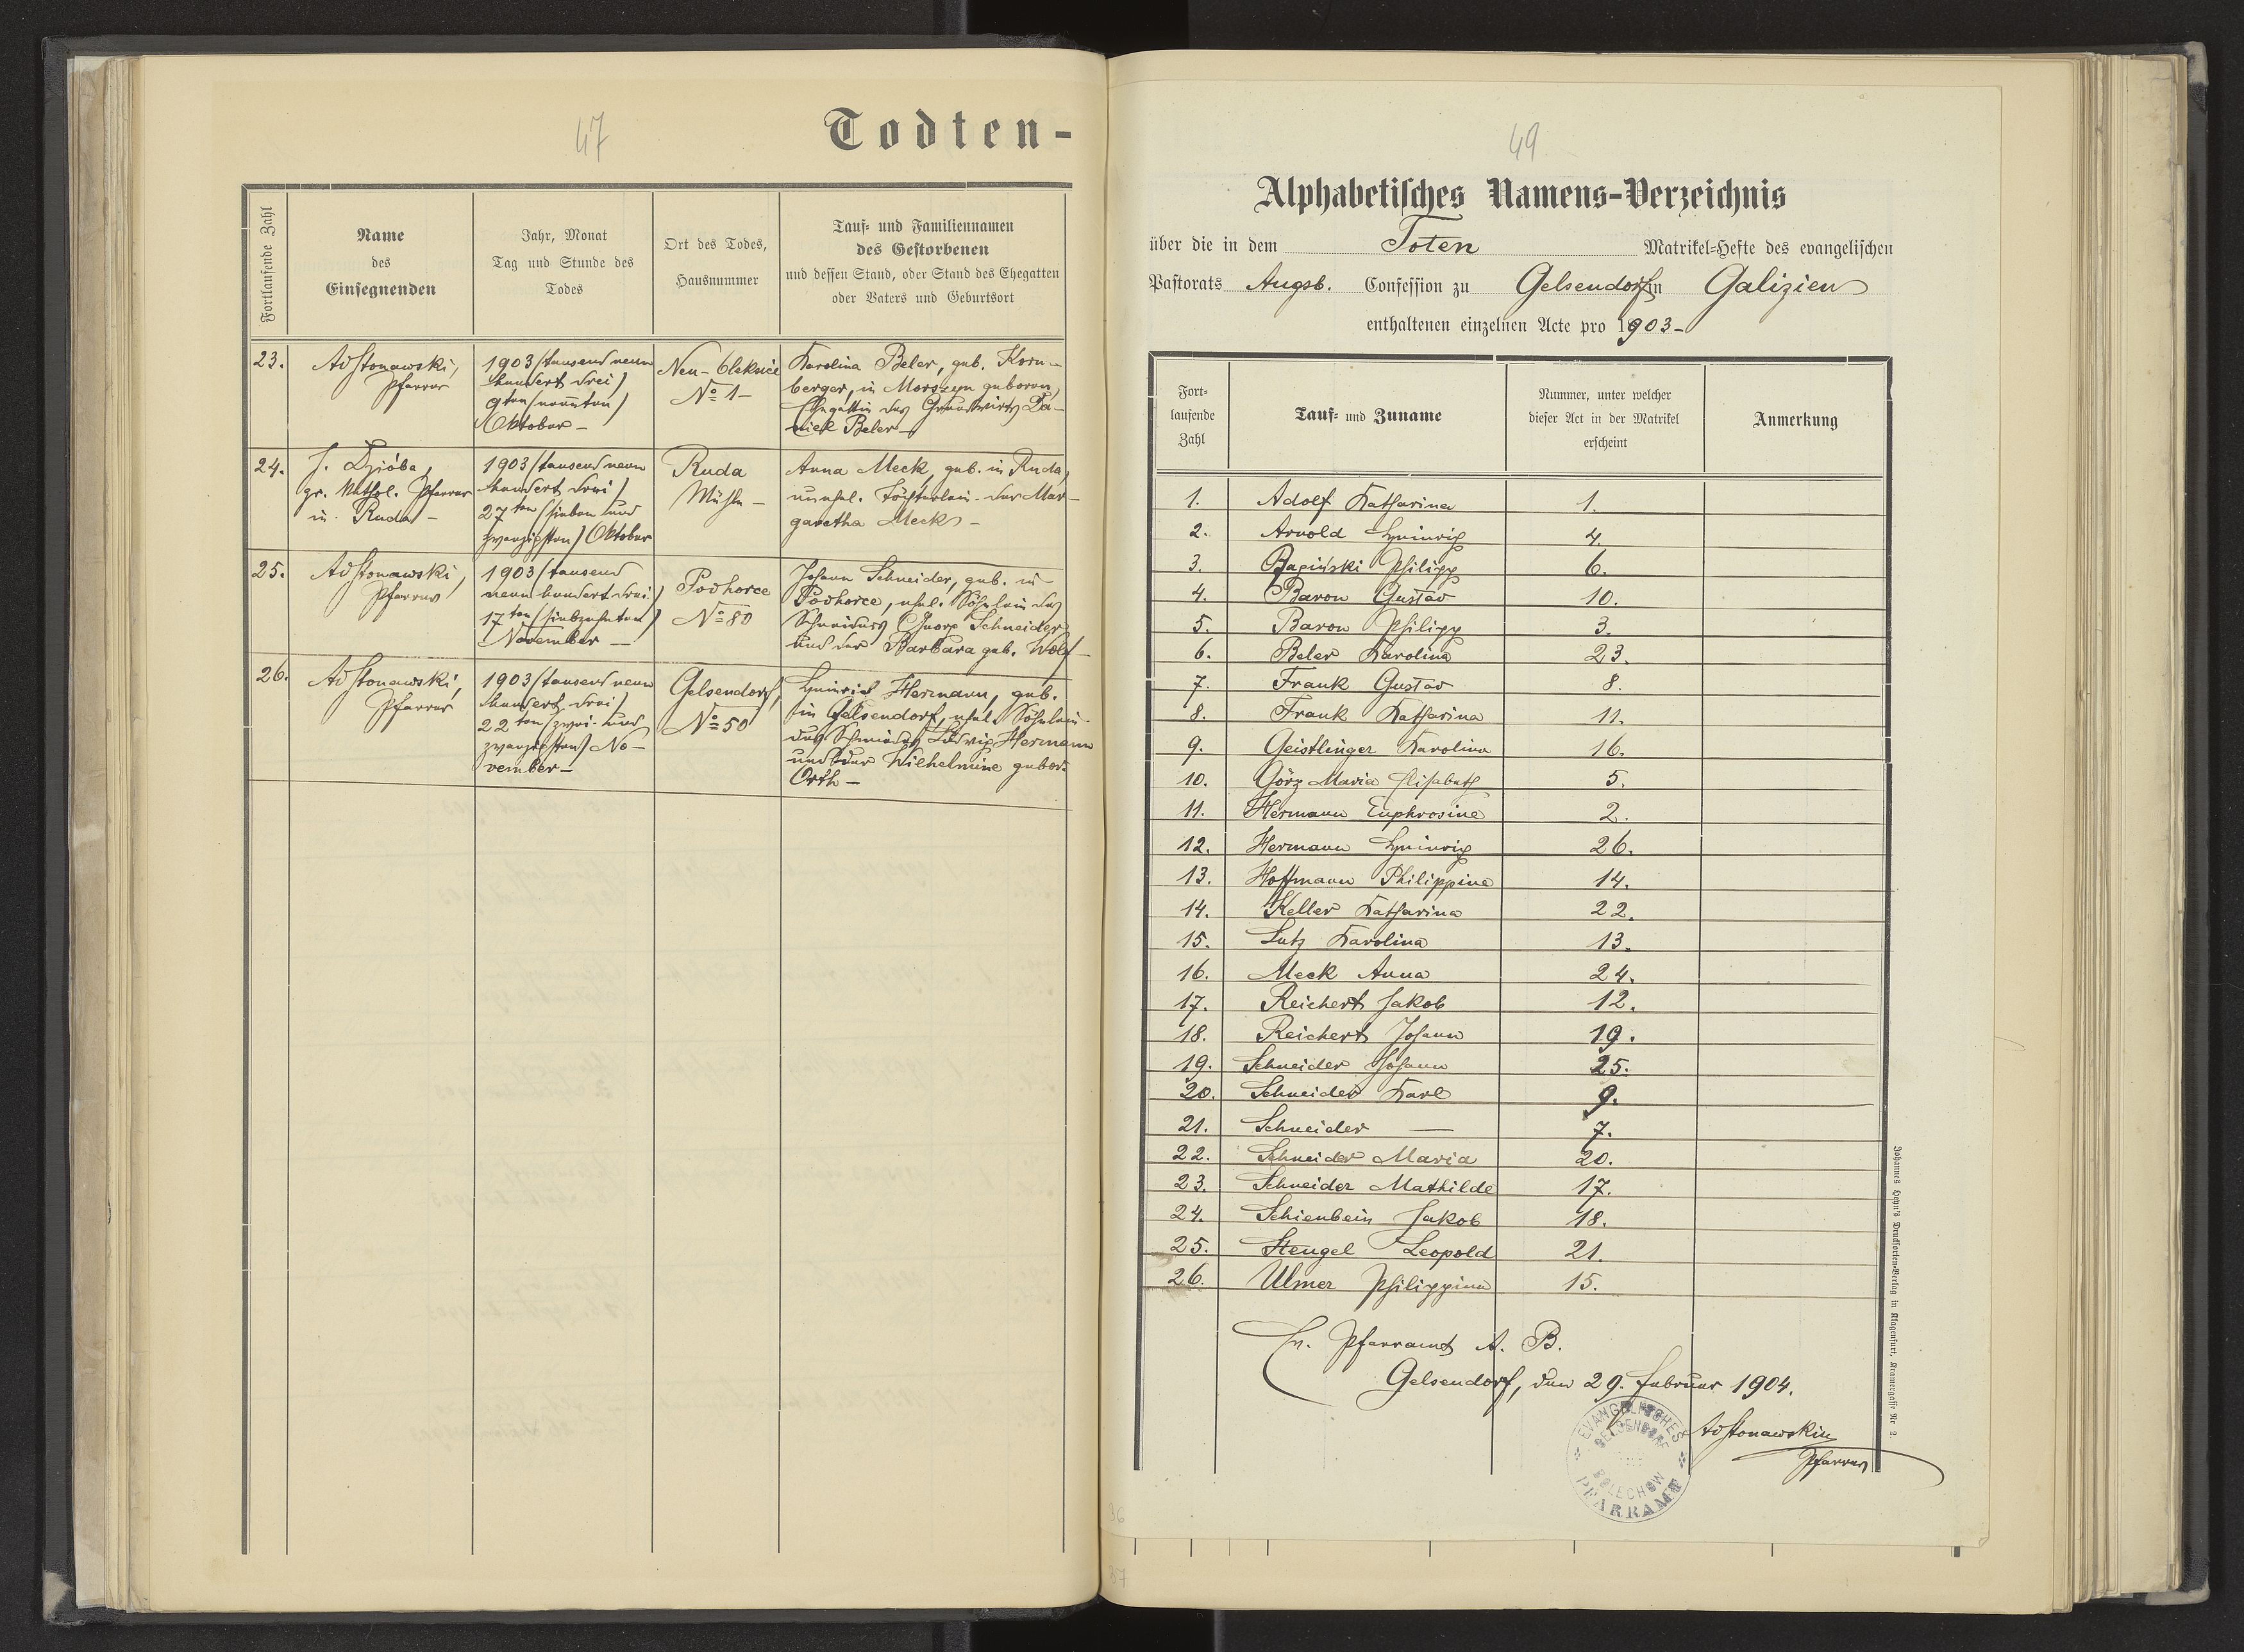 47
Todten-
Fortlaufende Zahl
Name
des
Einsegnenden
Jahr, Monat
Tag und Stunde des
Todes
Ort des Todes,
Hausnummer
Tauf- und Familiennamen
des Gestorbenen
und dessen Stand, oder Stand des Ehegatten
oder Vaters und Geburtsort
23.
Ad Stonawski,
Pfarrer
1903 /tausend neun
hundert drei/
9ten /neunten/
Oktober –
Neu-Oleksice
No 1 –
Karolina Beler, geb. Korn-
berger, in Morszyn geboren,
Ehegattin des Grundwirts Da-
niel Beler –
24.
J. Dzióba,
gr. kathol. Pfarrer
in Ruda –
1903 /tausend neun
hundert drei/
27ten /sieben und
zwanzigsten/ Oktober
Ruda
Mühle –
Anna Meck, geb. in Ruda,
unehel. Töchterlein der Mar-
garetha Meck –
25.
Ad Stonawski,
Pfarrer
1903 /tausend
neun hundert drei/
17ten /siebzehnten/
November –
Podhorce
No 80
Johann Schneider, geb. in
Podhorce, ehel. Söhnlein des
Schneiders Georg Schneider
und der Barbara geb. Wolf –
26.
Ad Stonawski,
Pfarrer
1903 /tausend neun
hundert drei/
22ten /zwei und
zwanzigsten/ No-
vember –
Gelsendorf,
No 50
Heinrich Hermann, geb.
in Gelsendorf, ehel. Söhnlein
des Schmiedes Ludwig Hermann
und der Wilhelmine gebor.
Orth –
49
Alphabetisches Namens-Verzeichnis
über die in dem Toten Matrikel-Hefte des evangelischen
Pastorats Augsb. Confession zu Gelsendorf in Galizien
enthaltenen einzelnen Acte pro 1903 –
Fort-
laufende
Zahl
Tauf- und Zuname
Nummer, unter welcher
dieser Act in der Matrikel
erscheint
Anmerkung
1. Adolf Katharina 1.
2. Arnold Heinrich 4.
3. Baginski Philipp 6.
4. Baron Gustav 10.
5. Baron Philipp 3.
6. Beler Karolina 23.
7. Frank Gustav 8.
8. Frank Katharina 11.
9. Geistlinger Karolina 16.
10. Görz Maria Elisabeth 5.
11. Hermann Euphrosine 2.
12. Hermann Heinrich 26.
13. Hoffmann Philippine 14.
14. Keller Katharina 22.
15. Lutz Karolina 13.
16. Meck Anna 24.
17. Reichert Jakob 12.
18. Reichert Johann 19.
19. Schneider Johann 25.
20. Schneider Karl 9.
21. Schneider — 7.
22. Schneider Maria 20.
23. Schneider Mathilde 17.
24. Schienbein Jakob 18.
25. Stengel Leopold 21.
26. Ulmer Philippina 15.
Ev. Pfarramt A. B.
Gelsendorf, den 29. Februar 1904.
Ad Stonawski
Pfarrer
EVANGELISCHES
GELSENDORF
BOLECHOW
PFARRAMT
Johannes Heyn's Drucksorten-Verlag in Klagenfurt, Kramergasse Nr 2.
36
37